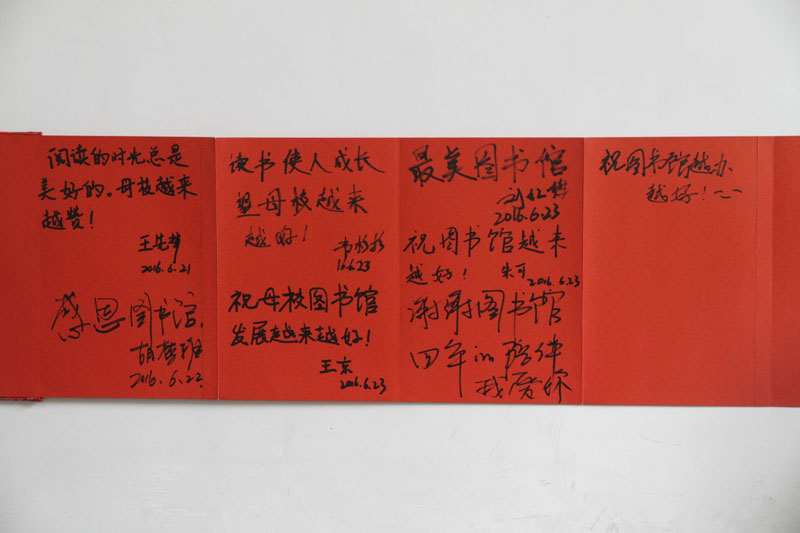 阅读的时光总是
美好的。母校越来
越赞！
2016.6.21
感恩图书馆.
2016.6.22
读书使人成长
望母校越来
越好！
16.6.23
祝母校图书馆
发展越来越好！
王京
2016.6.23
最美图书馆
2016.6.23
祝图书馆越来
越好！ 朱可
2016.6.23
谢谢图书馆
四年的陪伴
我爱你
祝图书馆越办
越好！